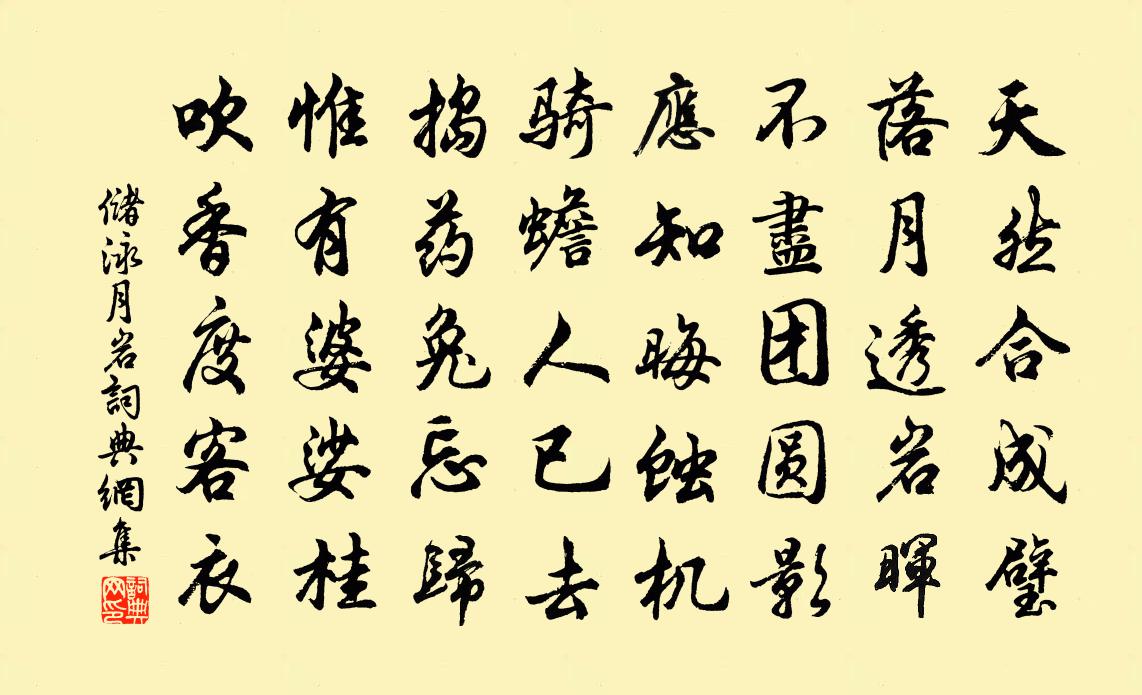 天然合成璧
落月透岩暉
不盡团圆影
應知晦蚀机
騎蟾人已去
搗药兔忘歸
惟有婆娑桂
吹香度客衣
儲泳月岩詞典網集
詞典网印